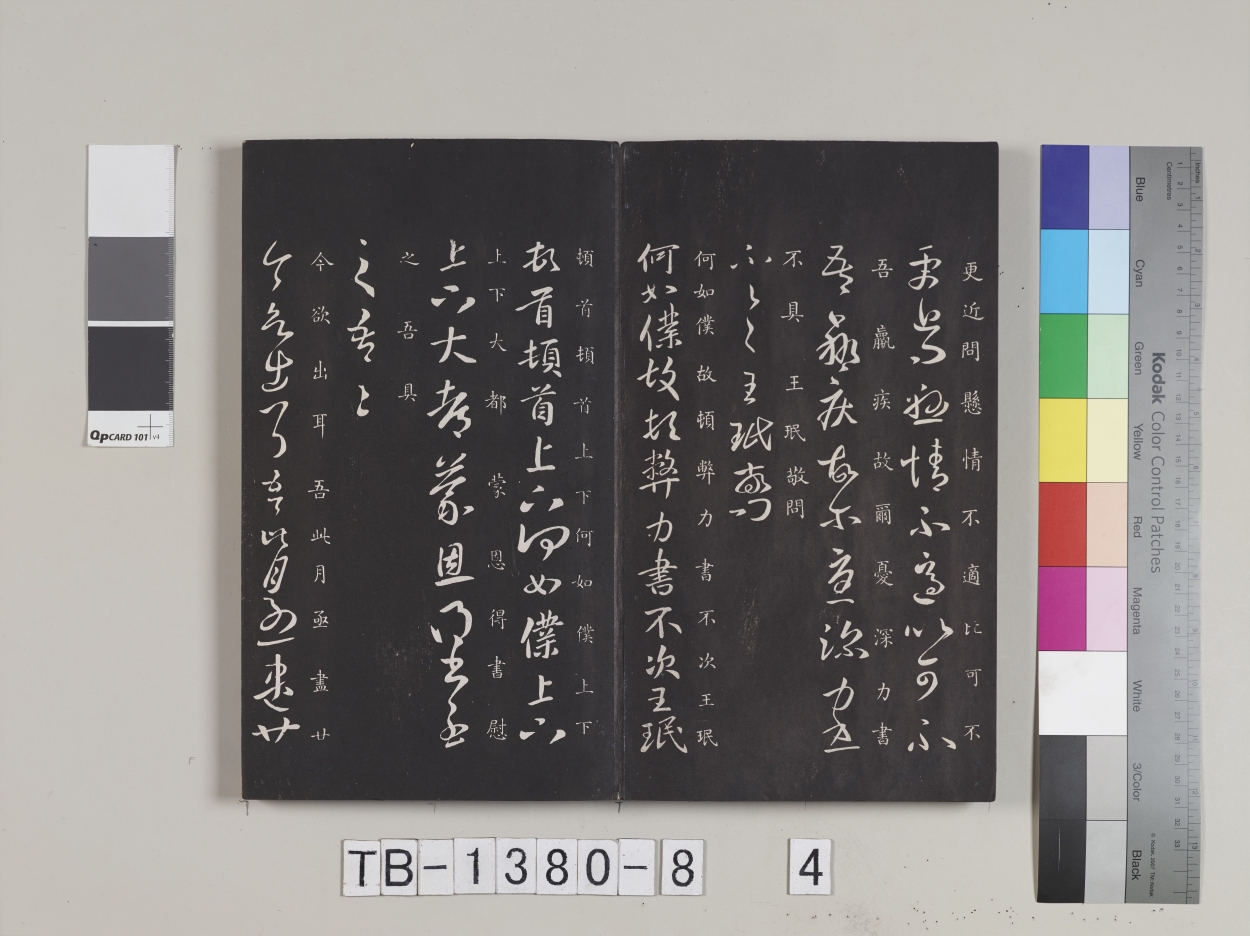 更近問懸情不適比可不
吾羸疾故爾憂深力書
不具王珉敬問
何如僕故頓弊力書不次王珉
頓首頓首上下何如僕上下
上下大都蒙恩得書慰
之吾具
今欲出耳吾此月亟盡廿
QPCARD 101 v4
Kodak Color Control Patches
Blue
Cyan
Green
Yellow
Red
Magenta
White
3/Color
Black
Inches
Centimetres
© Kodak, 2007 TM: Kodak
TB-1380-8 4